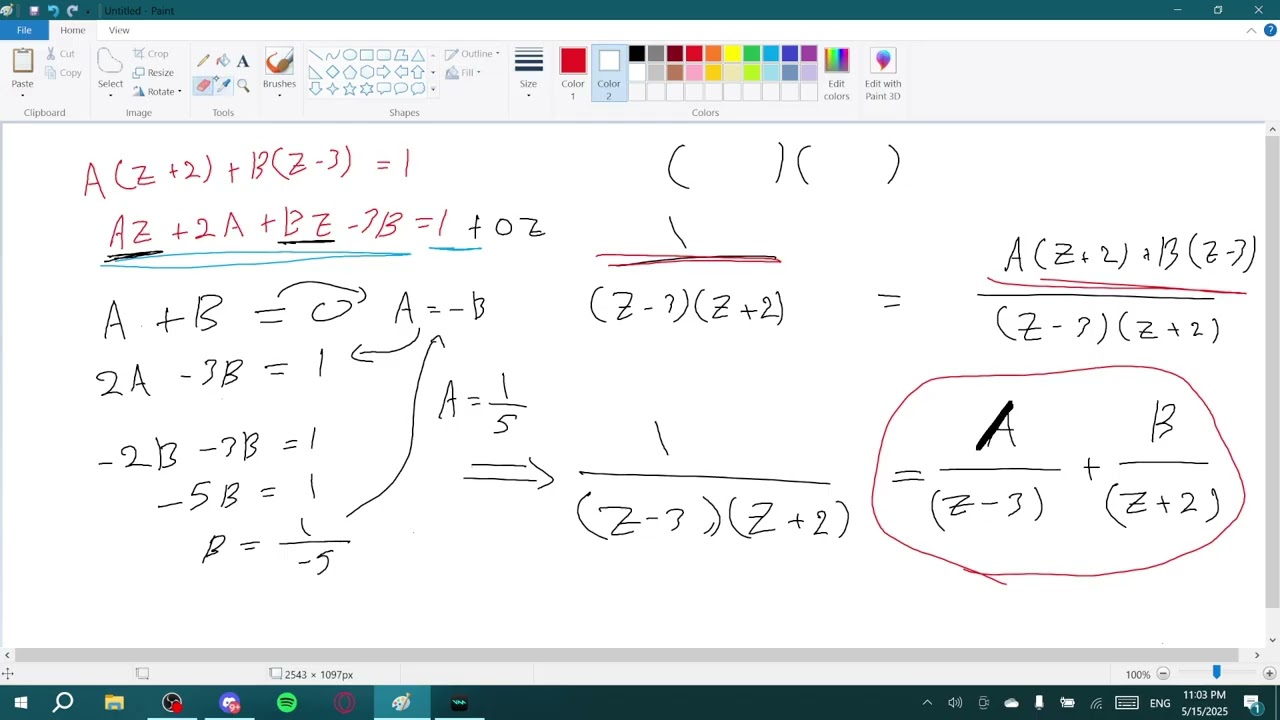 Untitled - Paint
File Home View
Paste
Cut
Copy
Clipboard
Select
Crop
Resize
Rotate
Image
A
Tools
Brushes
Outline
Fill
Shapes
Size
Color 1
Color 2
Edit colors
Colors
Edit with Paint 3D
A(Z+2)+B(Z-3) = 1
AZ +2A +BZ -3B = 1 + 0Z
A + B = 0
A = -B
2A - 3B = 1
-2B -3B = 1
-5B = 1
B = 1/-5
A = 1/5
( )( )
1/(Z-3)(Z+2) = A(Z+2)+B(Z-3)/(Z-3)(Z+2)
⇒ 1/(Z-3)(Z+2) = A/(Z-3) + B/(Z+2)
2543 × 1097px
100%
ENG
11:03 PM
5/15/2025